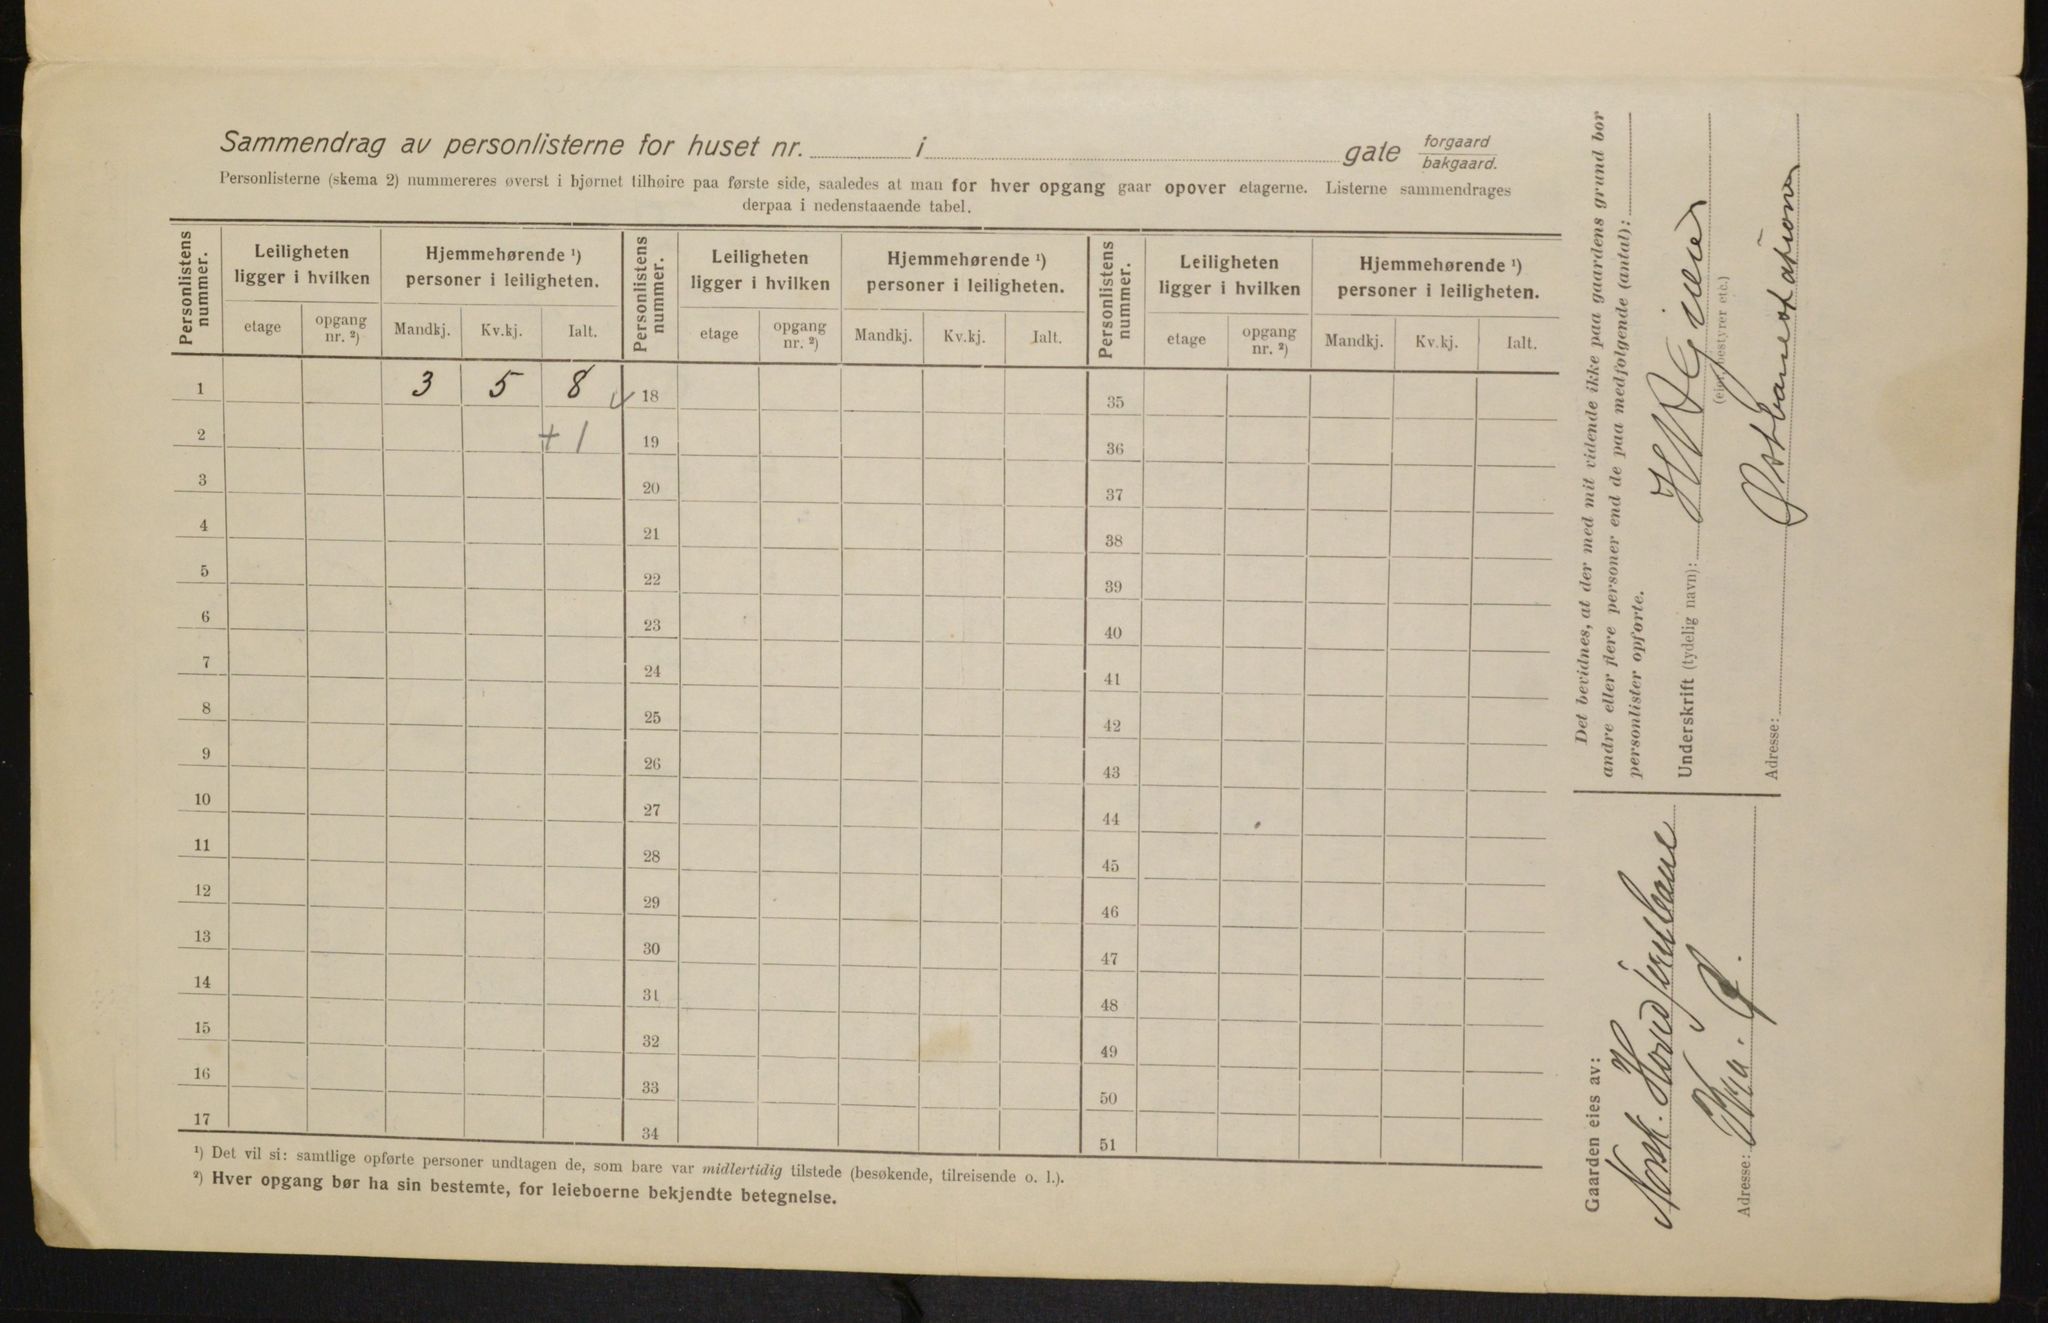 Sammendrag av personlisterne for huset nr. i gate forgaard bakgaard.
Personlisterne (skema 2) nummereres øverst i hjørnet tilhøire paa første side, saaledes at man for hver opgang gaar opover etagerne. Listerne sammendrages
derpaa i nedenstaaende tabel.
Personlistens nummer. Leiligheten ligger i hvilken Hjemmehørende ¹) personer i leiligheten. Personlistens nummer. Leiligheten ligger i hvilken Hjemmehørende ¹) personer i leiligheten. Personlistens nummer. Leiligheten ligger i hvilken Hjemmehørende ¹) personer i leiligheten.
etage opgang nr. ²) Mandkj. Kv.kj. Ialt. etage opgang nr. ²) Mandkj. Kv.kj. Ialt. etage opgang nr. ²) Mandkj. Kv.kj. Ialt.
1 3 5 8 18 35
2 + 1 19 36
3 20 37
4 21 38
5 22 39
6 23 40
7 24 41
8 25 42
9 26 43
10 27 44
11 28 45
12 29 46
13 30 47
14 31 48
15 32 49
16 33 50
17 34 51
¹) Det vil si: samtlige opførte personer undtagen de, som bare var midlertidig tilstede (besøkende, tilreisende o. l.).
²) Hver opgang bør ha sin bestemte, for leieboerne bekjendte betegnelse.
Det bevidnes, at der med mit vidende ikke paa gaardens grund bor
andre eller flere personer end de paa medfølgende (antal):
personlister opførte.
Underskrift (tydelig navn):
(eier, bestyrer etc.)
Adresse: Østbanestationen
Gaarden eies av:
Norsk. Hovedjernbane
Adresse: Kra. Ø.